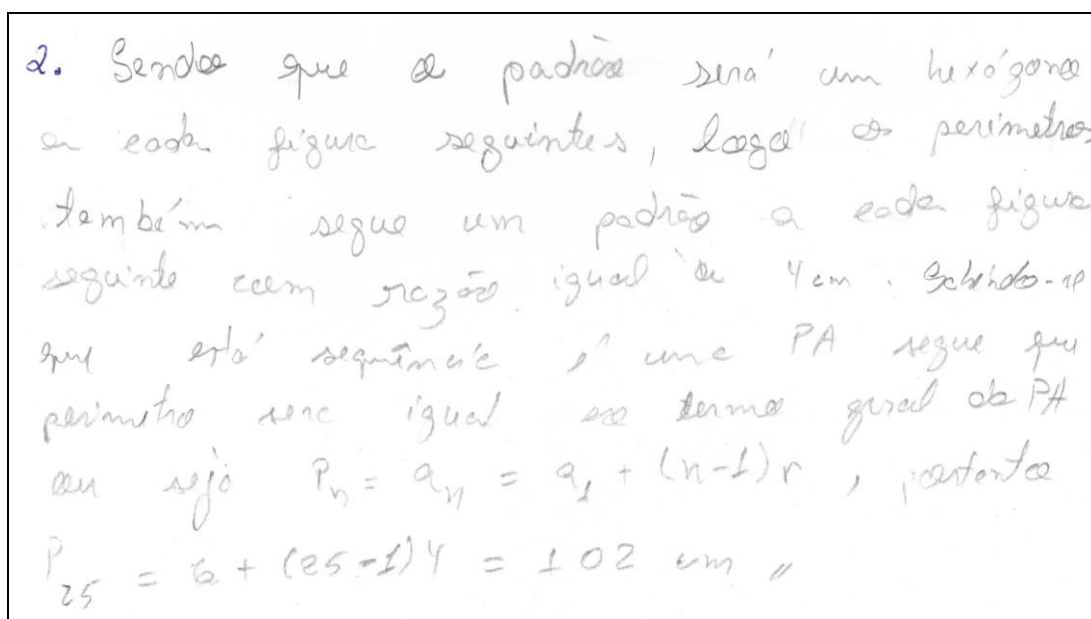 2. Sendo que o padrão será um hexógono
a cada figura seguintes, logo os perimetros
também segue um padrão a cada figura
seguinte com razão igual a 4 cm. Sabendo-se
que está sequência é uma PA segue que
perimetro sera igual ao termo geral da PA
ou seja P_n = a_n = a_1 + (n-1)r, portanto
P_25 = 6 + (25-1)4 = 102 cm //